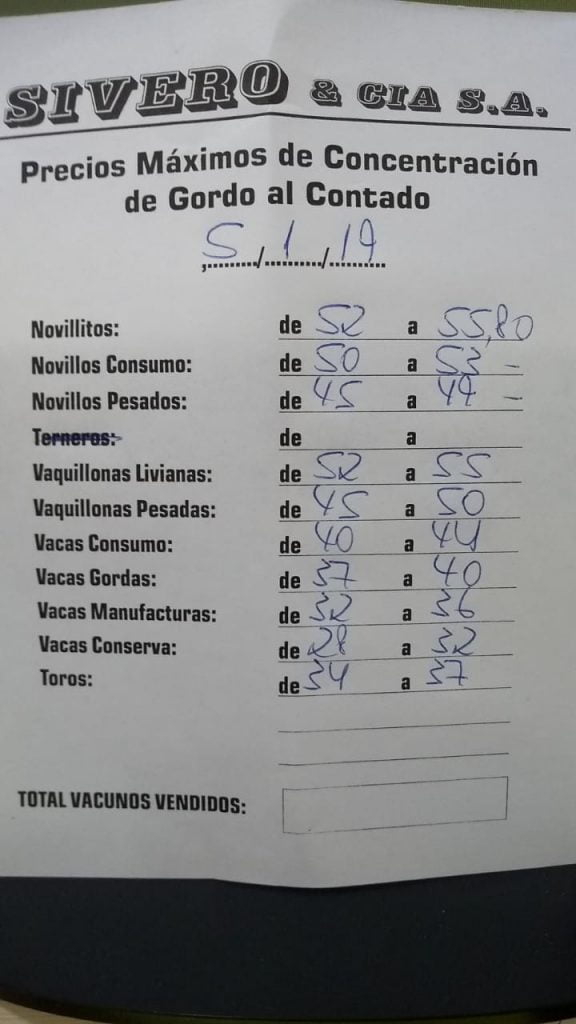 SIVERO & CIA S.A.
Precios Máximos de Concentración
de Gordo al Contado
5/1/19
Novillitos: de 52 a 55,80
Novillos Consumo: de 50 a 53 -
Novillos Pesados: de 45 a 49 -
Terneros: de a
Vaquillonas Livianas: de 52 a 55
Vaquillonas Pesadas: de 45 a 50
Vacas Consumo: de 40 a 44
Vacas Gordas: de 37 a 40
Vacas Manufacturas: de 32 a 36
Vacas Conserva: de 28 a 32
Toros: de 34 a 37
TOTAL VACUNOS VENDIDOS: